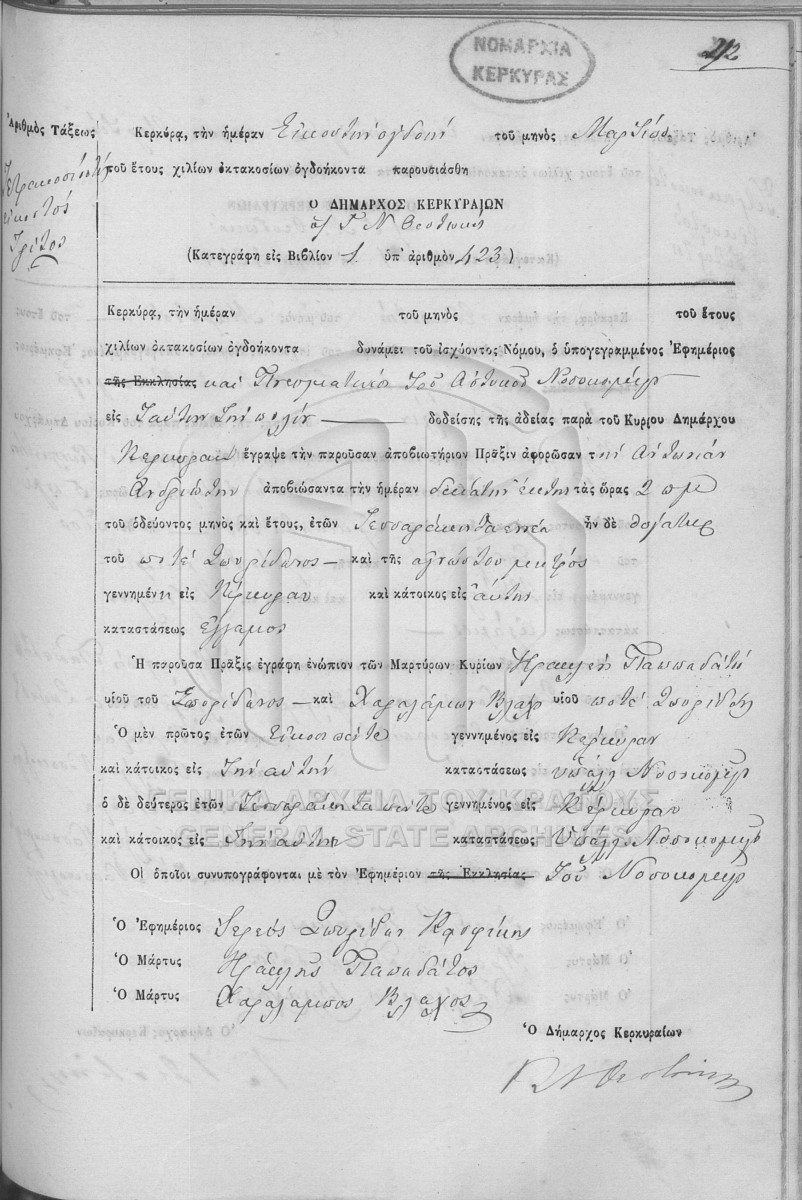 ΝΟΜΑΡΧΙΑ
ΚΕΡΚΥΡΑΣ
212
Ἀριθμὸς Τάξεως
Τετρακοσιοστός
εἰκοστός
τρίτος
Κερκύρᾳ, τὴν ἡμέραν Εἰκοστὴν ὀγδόην τοῦ μηνὸς Μαρτίου
τοῦ ἔτους χιλίων ὀκτακοσίων ὀγδοήκοντα παρουσιάσθη
Ο ΔΗΜΑΡΧΟΣ ΚΕΡΚΥΡΑΙΩΝ
Γ Ν Θεοτόκης
(Κατεγράφη εἰς Βιβλίον 1 ὑπ' ἀριθμὸν 423)
Κερκύρᾳ, τὴν ἡμέραν τοῦ μηνὸς τοῦ ἔτους
χιλίων ὀκτακοσίων ὀγδοήκοντα δυνάμει τοῦ ἰσχύοντος Νόμου, ὁ ὑπογεγραμμένος Ἐφημέριος
τῆς Ἐκκλησίας καὶ Πνευματικὸς τοῦ Ἀστυκοῦ Νοσοκομείου
εἰς ταύτην τὴν πόλιν δοδείσης τῆς ἀδείας παρὰ τοῦ Κυριου Δημάρχου
Κερκυραίων ἔγραψε τὴν παροῦσαν ἀποβιωτήριον Πρᾶξιν ἀφορῶσαν τὴν Ἀντωνίαν
Ἀνδριώτην ἀποβιώσαντα τὴν ἡμέραν δεκάτην ἕκτην τὰς ὥρας 2 πμ
τοῦ ὁδεύοντος μηνὸς καὶ ἔτους, ἐτῶν Τεσσαράκοντα ἐννέα ἦν δὲ θυγάτηρ
τοῦ ποτέ Σπυρίδωνος καὶ τῆς ἀγνώστου μητρός
γεννημένη εἰς Κέρκυραν καὶ κάτοικος εἰς αὐτὴν
καταστάσεως ἔγγαμος
Ἡ παροῦσα Πρᾶξις ἐγράφη ἐνώπιον τῶν Μαρτύρων Κυρίων Ἡρακλῆ Παππαδάτη
υἱοῦ τοῦ Σπυρίδωνος καὶ Χαραλάμπου Βλάχου υἱοῦ ποτέ Σπυρίδωνος
Ὁ μὲν πρῶτος ἐτῶν Εἰκοσι πέντε γεννημένος εἰς Κέρκυραν
καὶ κάτοικος εἰς τὴν αὐτήν καταστάσεως ὑπάλλ Νοσοκομείου
ὁ δὲ δεύτερος ἐτῶν Τεσσαράκοντα πέντε γεννημένος εἰς Κέρκυραν
καὶ κάτοικος εἰς τὴν αὐτήν καταστάσεως ὑπάλλ Νοσοκομείου
Οἱ ὁποῖοι συνυπογράφονται μὲ τὸν Ἐφημέριον τῆς Ἐκκλησίας τοῦ Νοσοκομείου
Ὁ Ἐφημέριος Ἱερεύς Σπυρίδων
Ὁ Μάρτυς Ἡρακλῆς Παπαδάτος
Ὁ Μάρτυς Χαράλαμπος Βλάχος
Ὁ Δήμαρχος Κερκυραίων
Γ Ν Θεοτόκης
ΓΕΝΙΚΑ ΑΡΧΕΙΑ ΤΟΥ ΚΡΑΤΟΥΣ
GENERAL STATE ARCHIVES